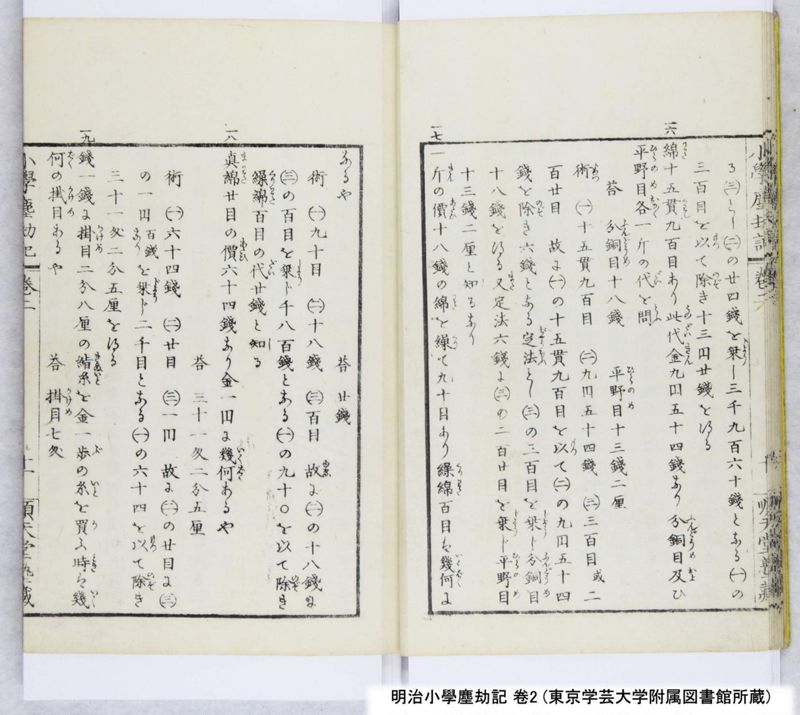 る㊂とし㊁の廿四錢を乗し三千九百六十錢となる㊀の
三百目を以て除き十三円廿錢を得る
一六
綿十五貫九百目あり此代金九円五十四錢あり分銅目及ひ
平野目各一斤の代と問
答 分銅目十八錢 平野目十三錢二厘
術㊀十五貫九百目 ㊁九円五十四錢 ㊂三百目或二
百廿目 故に㊀の十五貫九百目を以て㊁の九円五十四
錢を除き六錢となる定法とし㊂の三百目を乗し分銅目
十八錢を得る又定法六錢に㊂の二百廿目を乗し平野目
十三錢二厘と知るなり
一七
一斤の價十八錢の綿を繰て九十目あり繰綿百目は幾何に
なるや
答 廿錢
術 ㊀九十目 ㊁十八錢 ㊂百目 故に㊁の十八錢に
㊂の百目を乗し千八百錢となる㊀の九十〇を以て除き
繰綿百目の代廿錢と知る
一八
真綿廿目の價六十四錢なり金一円に幾何あるや
答 三十一匁二分五厘
術 ㊀六十四錢 ㊁廿目 ㊂一円 故に㊁の廿目に㊂
の一円百錢を乗し二千目となる㊀の六十四を以て除き
三十一匁二分五厘を得る
一九
錢一錢に掛目二分八厘の絹糸を金一歩の糸を買ふ時は幾
何の掛目あるや
答 掛目七匁
小學塵劫記 卷二 十一 順天堂塾藏
明治小學塵劫記 巻2（東京学芸大学附属図書館所蔵）